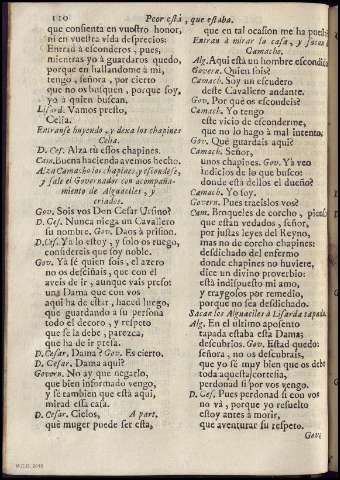 120 Peor està, que estaba.
que consienta en vuestro honor,
ni en vuestra vida desprecios:
Entrad à esconderos, pues,
mientras yo à guardaros quedo,
porque en hallandome à mi,
tengo, señora, por cierto
que no os busquen, porque soy,
yo à quien buscan.
Lisard. Vamos presto,
Celia.
Entranse huyendo, y dexa los chapines
Celia.
D. Ces. Alza tu essos chapines.
Cam. Buena hacienda avemos hecho.
Alza Camacho los chapines, y escondese,
y sale el Governador con acompaña-
miento de Alguaciles, y
criados.
Gov. Sois vos Don Cesar Ursino?
D. Ces. Nunca niega un Cavallero
su nombre. Gov. Daos à prision.
D. Ces. Ya lo estoy, y solo os ruego,
considereis que soy noble.
Gov. Ya sè quien sois, el azero
no os desciñais, que con èl
aveis de ir, aunque vais preso:
una Dama que con vos
aqui ha de estar, haced luego,
que guardando à su persona
todo el decoro, y respeto
que se la debe, parezca,
que ha de ir presa.
D. Cesar. Dama? Gov. Es cierto.
D. Cesar. Dama aqui?
Govern. No ay que negarlo,
que bien informado vengo,
y sè tambien que està aqui,
mirad essa casa.
D. Cesar. Cielos, A part.
què muger puede ser esta,
que en tal ocasion me ha puesto
Entran à mirar la casa, y sacan à
Camacho.
Alg. Aqui està un hombre escondido
Govern. Quien sois?
Camach. Soy un escudero
deste Cavallero andante.
Gov. Por què os escondeis?
Camach. Yo tengo
este vicio de esconderme,
que no lo hago à mal intento.
Gov. Què guardais aqui?
Camach. Señor,
unos chapines. Gov. Ya veo
indicios de lo que busco:
donde està dellos el dueño?
Camach. Yo soy.
Govern. Pues traeislos vos?
Cam. Broqueles de corcho, pienso
que estàn vedados, señor,
por justas leyes del Reyno,
mas no de corcho chapines:
desdichado del enfermo
donde chapines no huviere,
dice un divino proverbio:
està indispuesto mi amo,
y traygolos por remedio,
porque no sea desdichado.
Sacan los Alguaciles à Lisarda tapada.
Alg. En el ultimo aposento
tapada estaba esta Dama;
descubrios. Gov. Estad quedo:
señora, no os descubrais,
que yo sè muy bien que os debo
toda aquesta cortesia,
perdonad si por vos vengo.
D. Ces. Pues perdonad si con vos
no và, porque yo resuelto
estoy antes à morir,
que aventurar su respeto.
Gov.